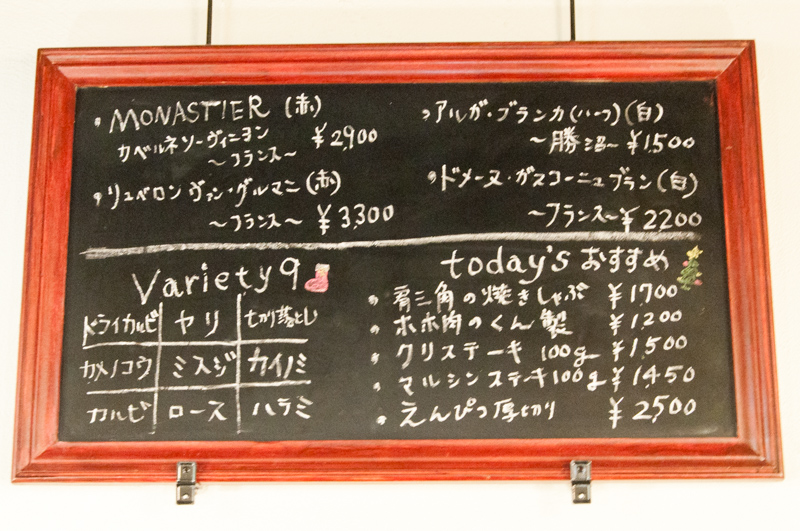 ・MONASTIER (赤)
カベルネソーヴィニヨン ¥2,900
～フランス～
・リュベロン ヴァン・グルマニ (赤)
～フランス～ ¥3,300
・アルガ・ブランカ(ハーフ)(白)
～勝沼～ ¥1,500
・ドメーヌ・ガスコーニュブラン(白)
～フランス～ ¥2,200
Variety 9
ドライカルビ ヤリ 切り落とし
カメノコウ ミスジ カイノミ
カルビ ロース ハラミ
today's おすすめ
・肩三角の焼きしゃぶ ¥1,700
・ホホ肉のくん製 ¥1,200
・クリステーキ 100g ¥1,500
・マルシンステーキ100g ¥1,450
・えんぴつ厚切り ¥2,500